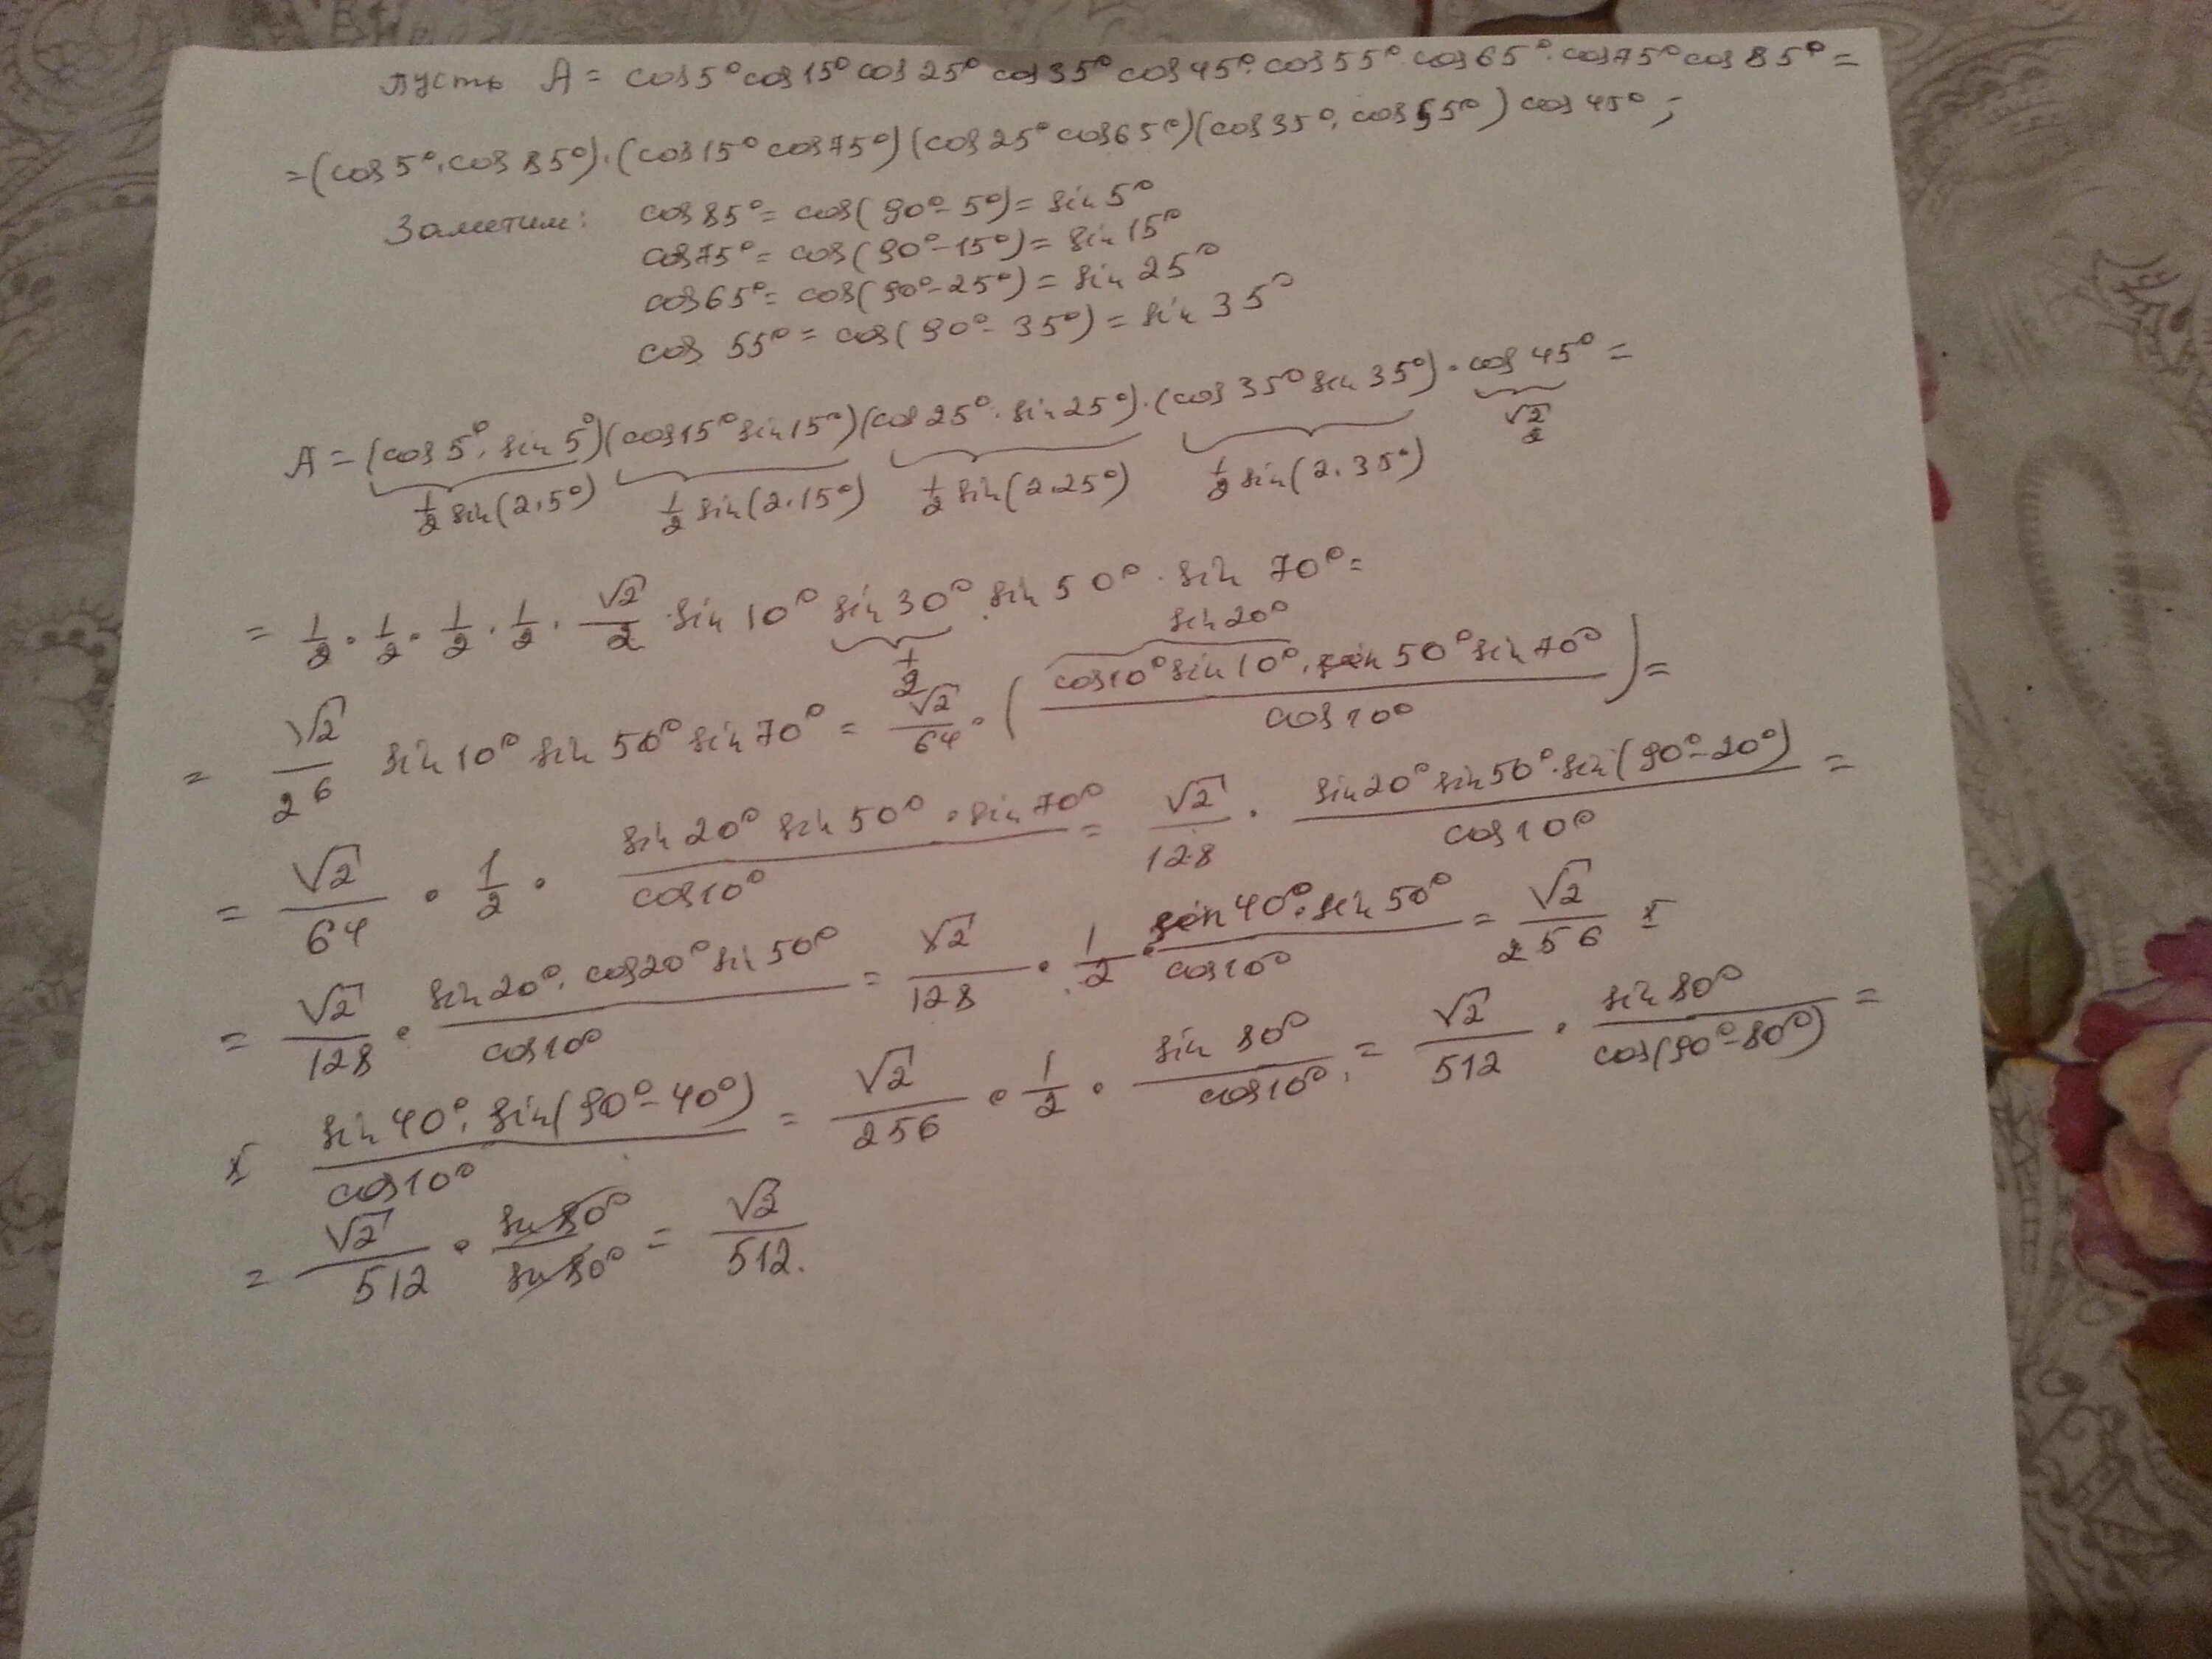 пусть A = cos5° cos15° cos25° cos35° cos45°·cos55°·cos65°·cos75° cos85° =
=(cos5°·cos85°)·(cos15° cos75°)(cos25° cos65°)(cos35°·cos55°) cos45°;
Заметим: cos85° = cos(90°-5°) = sin5°
cos75° = cos(90°-15°) = sin15°
cos65° = cos(90°-25°) = sin25°
cos 55° = cos(90°-35°) = sin35°
A = (cos5°·sin5°)(cos15° sin15°)(cos25°·sin25°)·(cos35° sin35°)·cos45° =
1/2 sin(2·5°) 1/2 sin(2·15°) 1/2 sin(2·25°) 1/2 sin(2·35°) √2/2
= 1/2 · 1/2 · 1/2 · 1/2 · √2/2 · sin10° sin30° · sin50° · sin 70° =
1/2 sin20°
= √2/2^6 sin10° sin50° sin70° = √2/64 · (cos10° sin10° · sin50° sin70° / cos10°) =
= √2/64 · 1/2 · sin20° sin50° · sin70° / cos10° = √2/128 · sin20° sin50° · sin(90°-20°) / cos10° =
= √2/128 · sin20° · cos20° sin50° / cos10° = √2/128 · 1/2 · sin40° · sin50° / cos10° = √2/256 x
x sin40° · sin(90°-40°) / cos10° = √2/256 · 1/2 · sin 80° / cos10° = √2/512 · sin80° / cos(90°-80°) =
= √2/512 · sin80° / sin80° = √2/512.